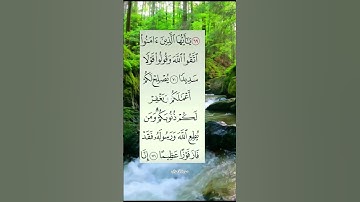 ٦٩ يَٰٓأَيُّهَا ٱلَّذِينَ ءَامَنُوا۟
ٱتَّقُوا۟ ٱللَّهَ وَقُولُوا۟ قَوْلًا
سَدِيدًا ٧٠ يُصْلِحْ لَكُمْ
أَعْمَٰلَكُمْ وَيَغْفِرْ
لَكُمْ ذُنُوبَكُمْ وَمَن
يُطِعِ ٱللَّهَ وَرَسُولَهُۥ فَقَدْ
فَازَ فَوْزًا عَظِيمًا ٧١ إِنَّا